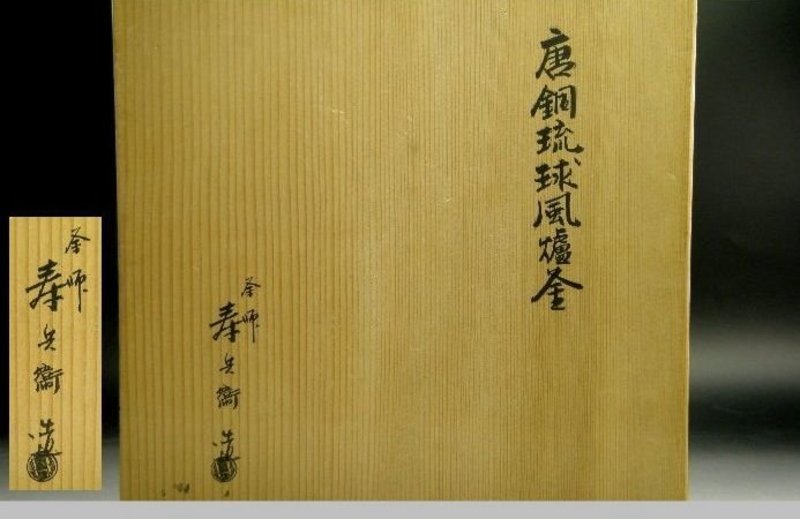 唐銅琉球風爐釜
釜師
寿兵衛 造
釜師
寿兵衛 造